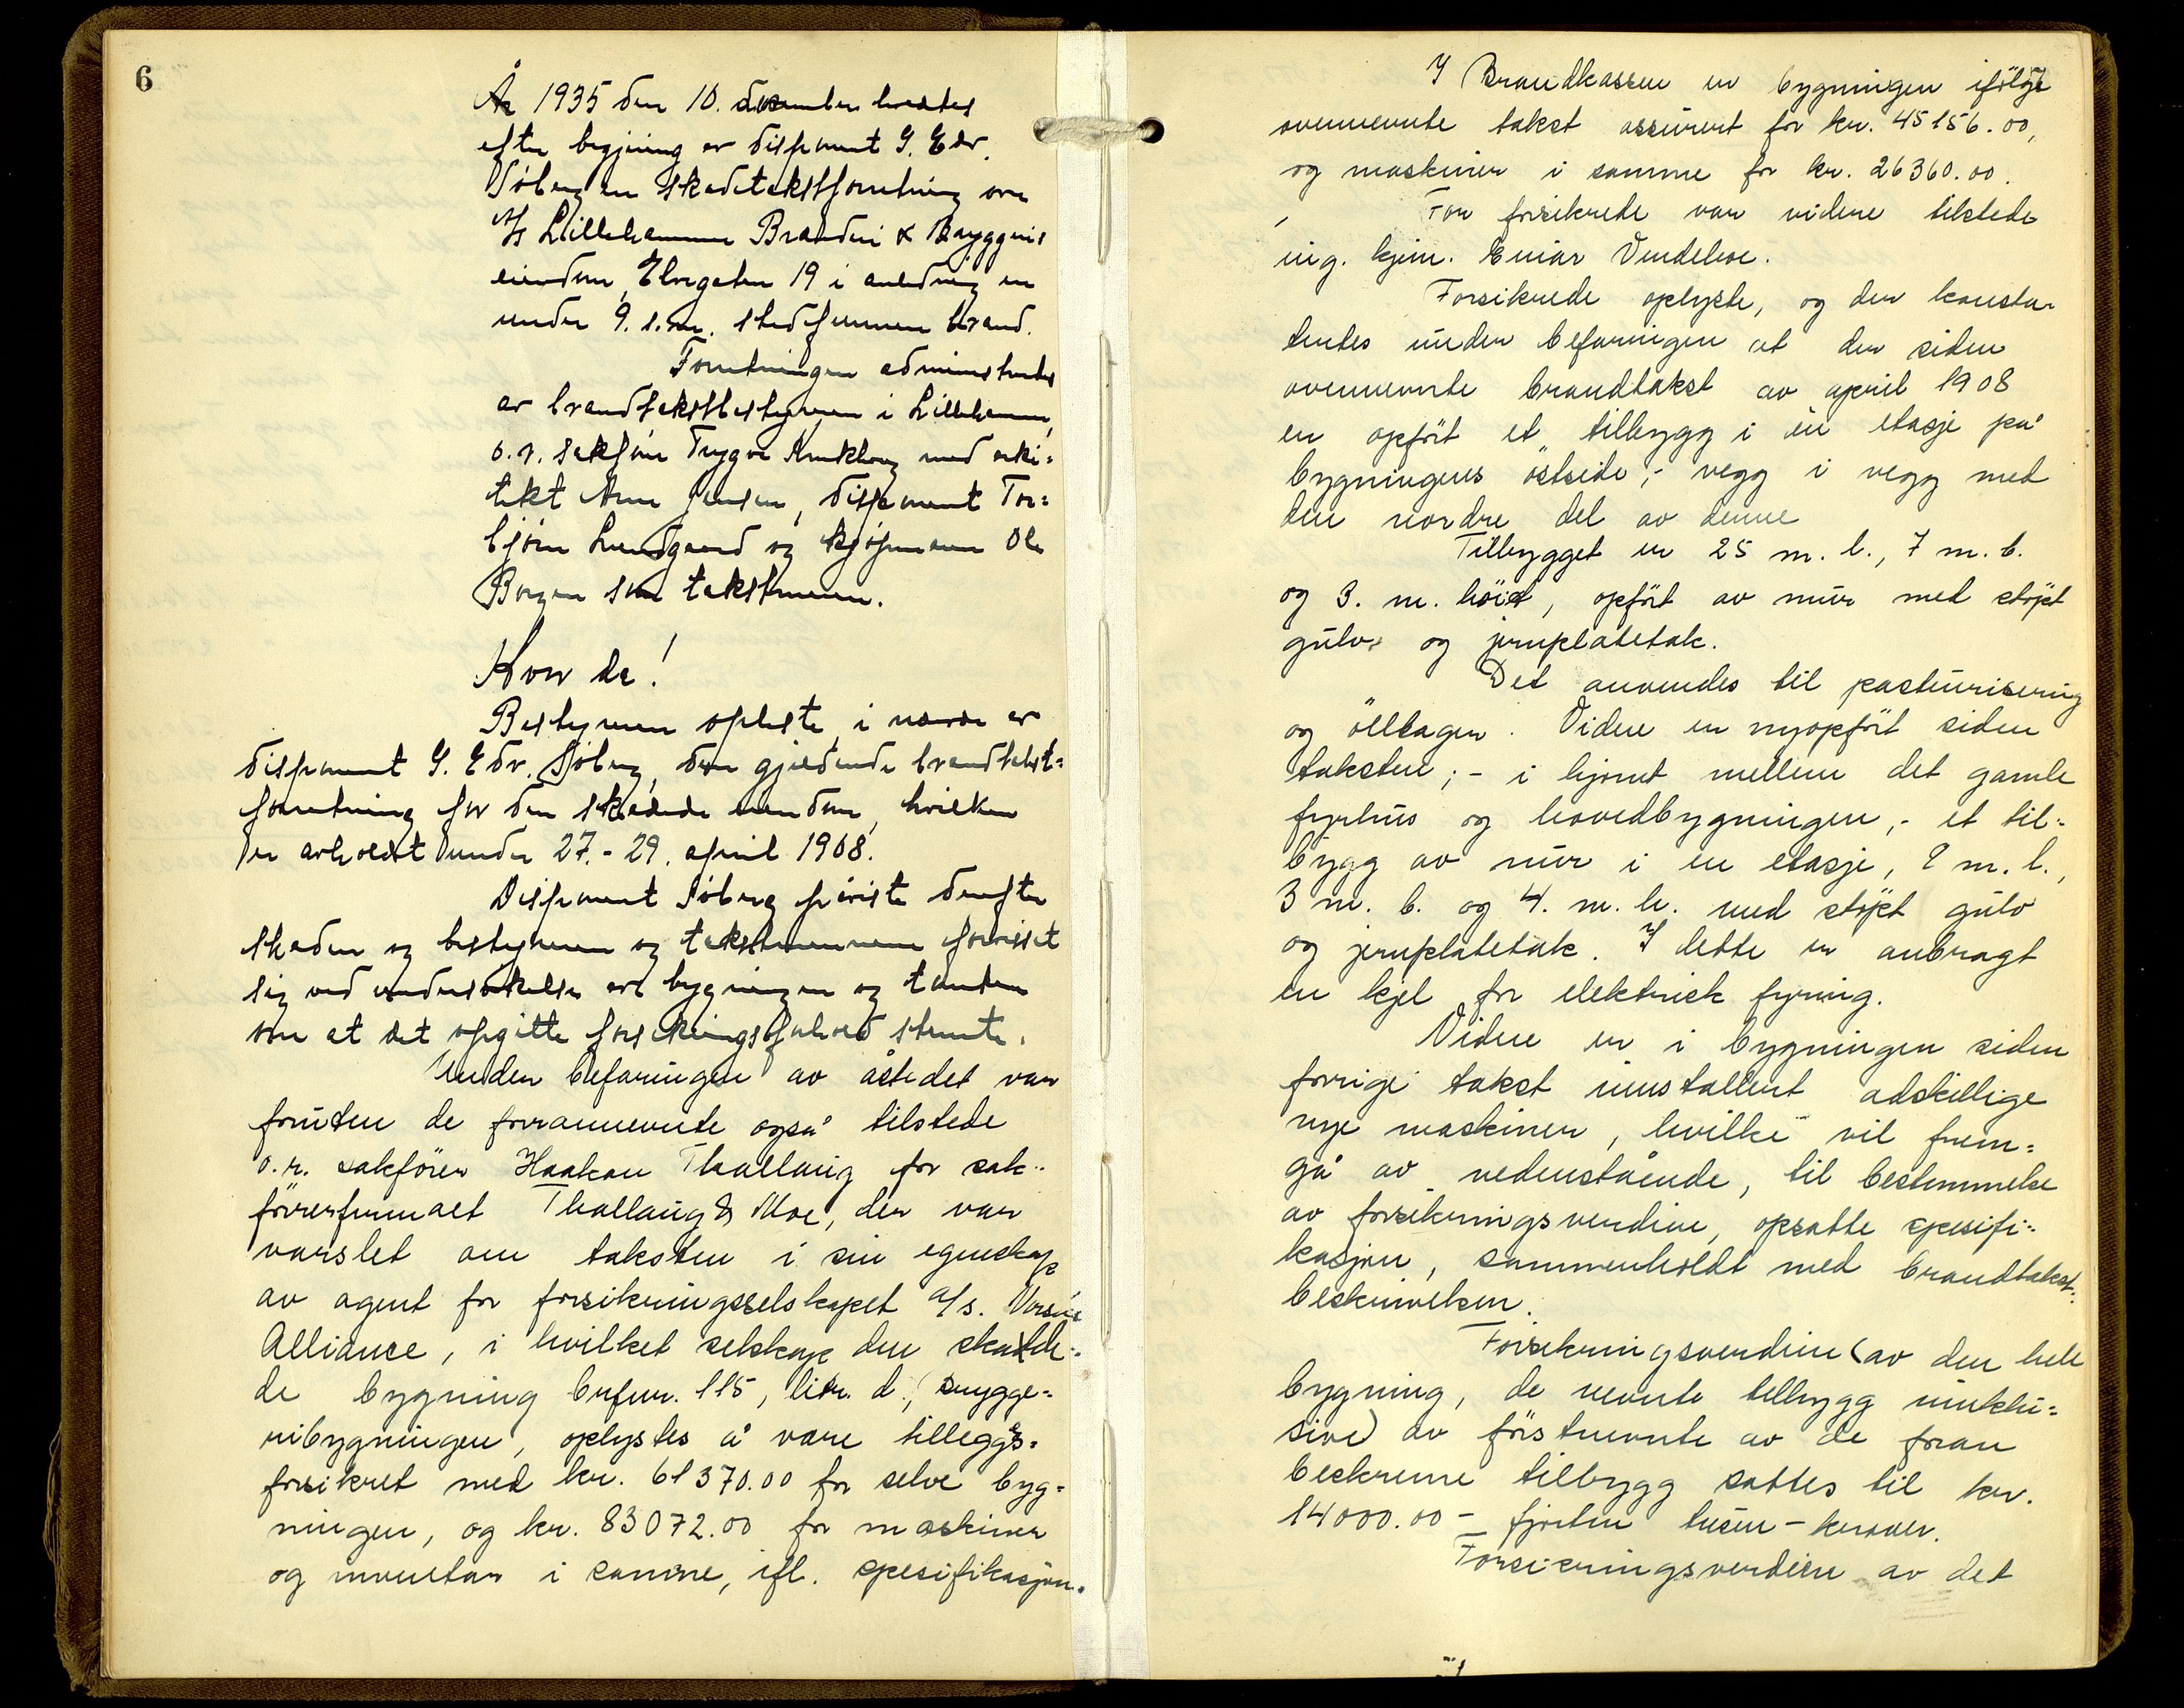 6
År 1935 den 10. desember holdtes
efter begjæring av disponent G. Edv.
Sjöberg en skadetakstforretning over
A/S Lillehammer Brænderi & Bryggeris
eiendom, Elvegaten 19 i anledning en
under 9. s.m. stedfunnen brand.
Forretningen administrertes
av brandtakstbestyreren i Lillehammer,
o.r. sakförer Trygve med arki-
tekt Arne Jensen, disponent Tor-
bjørn Lundgaard og kjøpmann Ole
Borgen som takstmenn.
Hvor da!
Bestyreren opleste, i nærvær av
disponent G. Edv. Sjöberg, den gjeldende brandtakst-
forretning for den skadede eiendom, hvilken
er avholdt under 27.-29. april 1908.
Disponent Sjöberg påviste derefter
skaden og bestyreren og takstmennene forvisset
sig ved undersøkelse av bygningen og tomten
om at det opgitte forsikringsforhold stemte.
Under befaringen av åstedet var
foruten de forannevnte også tilstede
o.r. sakförer Haakon Thallaug for sak-
förerfirmaet Thallaug & Moe, der var
varslet om taksten i sin egenskap
av agent for forsikringsselskapet a/s. Norske
Alliance, i hvilket selskap den skadde-
de bygning brfnr. 115, litr. d., brygge-
ribygningen, oplystes å være tilleggs-
forsikret med kr. 61370.00 for selve byg-
ningen, og kr. 83072.00 for maskiner
og inventar i samme, ifl. spesifikasjon.
I Brandkassen er bygningen ifölge
ovennevnte takst assurert for kr. 45156.00,
og maskiner i samme for kr. 26360.00.
For forsikrede var videre tilstede
ing. kjem. Einar Vendelboe.
Forsikrede oplyste, og der konsta-
tertes under befaringen at der siden
ovennevnte brandtakst av april 1908
er opfört et tilbygg i én etasje på
bygningens östside; - vegg i vegg med
den nordre del av denne
Tilbygget er 25 m. l., 7 m. b.
og 3. m. höid, opfört av mur med stöpt
gulv og jernplatetak.
Det anvendes til pasteurisering
og öllager. Videre er nyopfört siden
taksten; - i hjörnet mellem det gamle
fyrhus og hovedbygningen, - et til-
bygg av mur i en etasje, 9 m. l.,
3 m. b. og 4. m. h. med stöpt gulv
og jernplatetak. I dette er anbragt
en kjel for elektrisk fyring.
Videre er i bygningen siden
forrige takst innstallert adskillige
nye maskiner, hvilke vil frem-
gå av nedenstående, til bestemmelse
av forsikringsverdien, opsatte spesifi-
kasjon, sammenholdt med brandtakst-
beskrivelsen.
Forsikringsverdien (av den hele
bygning, de nevnte tilbygg innklu-
sive) av förstnevnte av de foran
beskrevne tilbygg sattes til kr.
14000.00 - fjorten tusen - kroner.
Forsikringsverdien av det